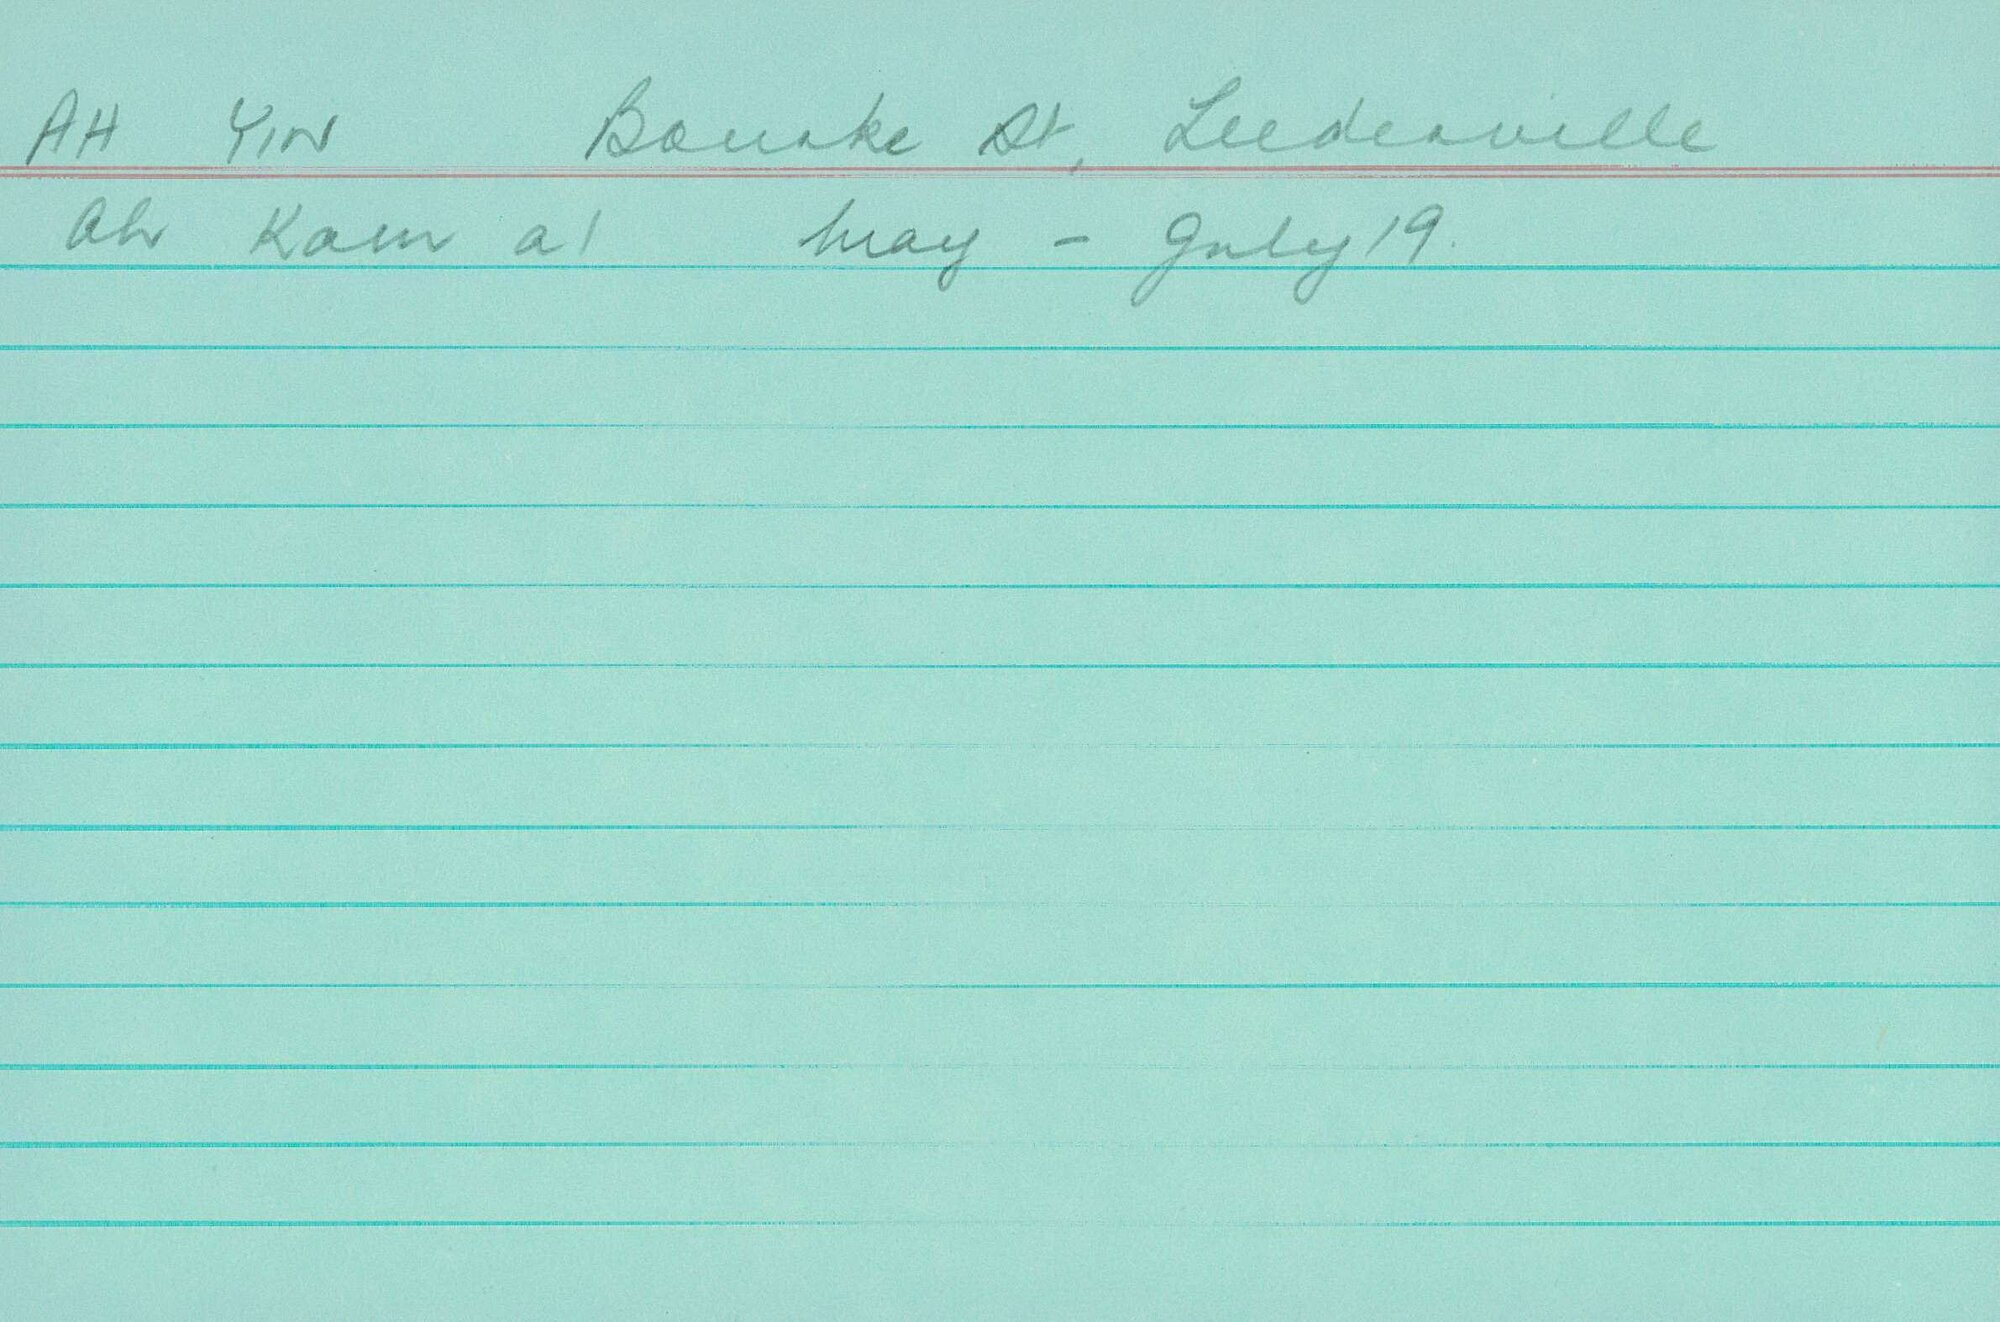 AH YIN Bourke St, Leederville
Ah Kam a1 May - July 19.